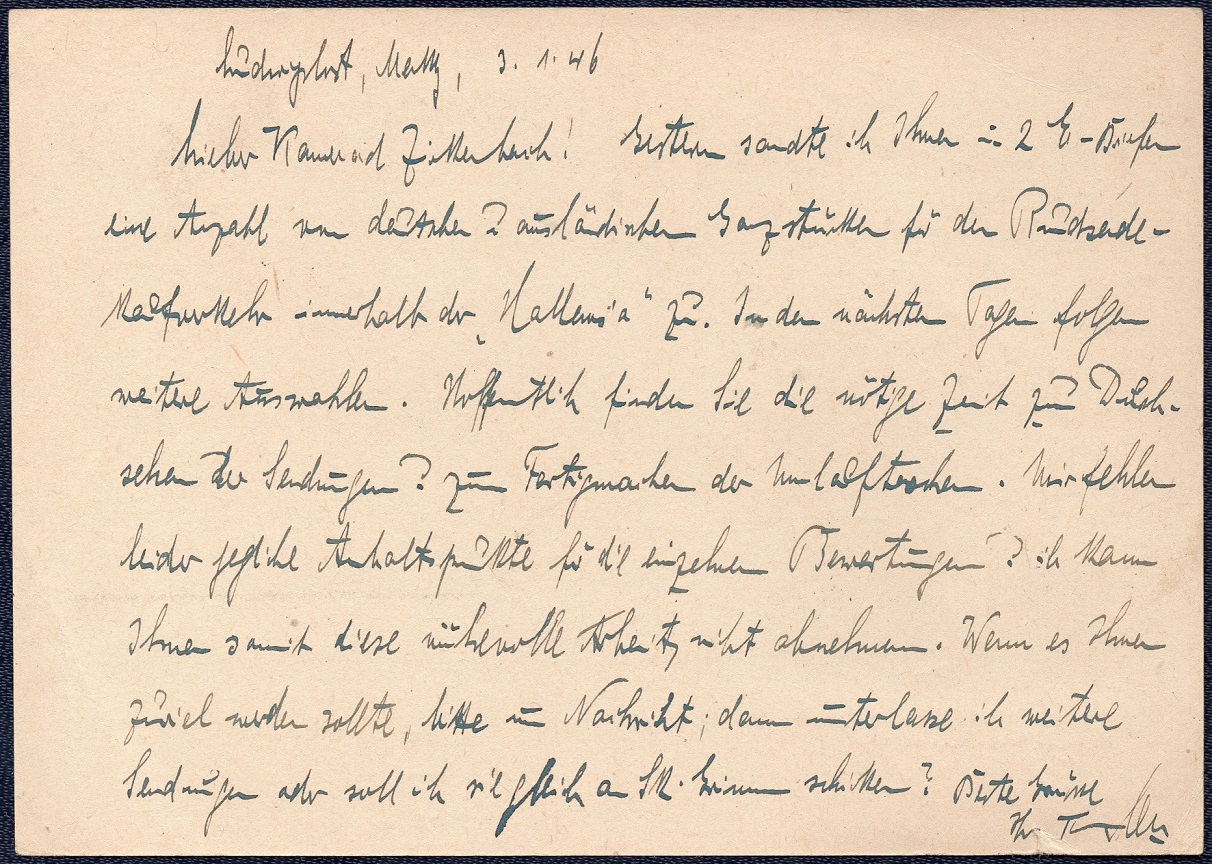 Ludwigslust, Meckl, 3.1.46
Lieber Kamerad Zirkenbach! Gestern sandte ich Ihnen in 2 E-Briefen
eine Anzahl von deutschen u ausländischen Ganzstücken für den Rundsende-
kaufverkehr innerhalb der „Hallensia" zu. In den nächsten Tagen folgen
weitere Auswahlen. Hoffentlich finden Sie die nötige Zeit zum Durch-
sehen der Sendungen u zum Fertigmachen der Umlauftaschen. Mir fehlen
leider jegliche Anhaltspunkte für die einzelnen Bewertungen u ich kann
Ihnen somit diese mühevolle Arbeit nicht abnehmen. Wenn es Ihnen
zuviel werden sollte, bitte um Nachricht; dann unterlasse ich weitere
Sendungen oder soll ich sie gleich an Sk. Grimm schicken? Beste Grüsse
Ihr